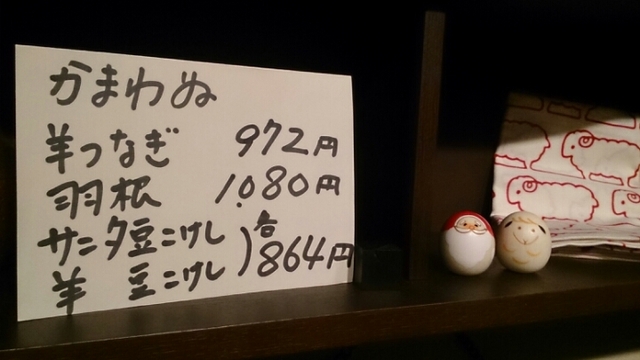 かまわぬ
羊つなぎ 972円
羽根 1,080円
サンタ豆こけし
羊 豆こけし ) 各864円